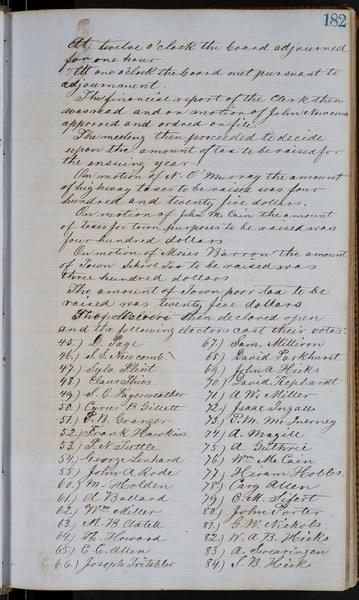 182
At twelve o'clock the board adjourned
for one hour
At one o'clock the board met pursuant to
adjournment.
The financial report of the Clerk then
was read and on motion of John
approved and ordered on file.
The meeting then proceeded to decide
upon the amount of tax to be raised for
the ensuing year
On motion of N. O. Murray the amount
of highway taxes to be raised was four
hundred and twenty five dollars.
On motion of John McCain the amount
of taxes for town purposes to be raised was
four hundred dollars
On motion of Moses Barron the amount
of Town School Tax to be raised was
three hundred dollars
The amount of Town poor tax to be
raised was twenty five dollars
The polls were then declared open
and the following electors cast their votes:
45.) D. Page
46.) S. S. Newcomb
47.) Sylv. Flint
48.) Claus Thies
49.) S. C. Fayerweather
50.) Cyrus B. Gillett
51.) P. B. Granger
52.) Frank Hawkins
53.) P. N. Tuttle
54.) George Lenhard
55.) John A Rode
60.) M. Holden
61.) A Ballard
62.) Wm Miller
63.) M. B. Axtell
64.) Th. Howard
65.) C. C. Allen
66.) Joseph Tritchler
67.) Sam. Milliron
68.) David Parkhurst
69.) John A Hicks
70.) David Kephardt
71.) A W. Miller
72.) Isaac Ingalls
73.) P. M. McInerney
74.) A. Magill
75.) A Guthrie
76.) Wm McCain
77.) Hiram Hobbs
78.) Cary Allen
79.) C. M. Sifert
80.) John Porter
81.) G. W. Nichols
82.) W. A B. Hicks
83.) A. Swearingen
84.) S. B. Hicks